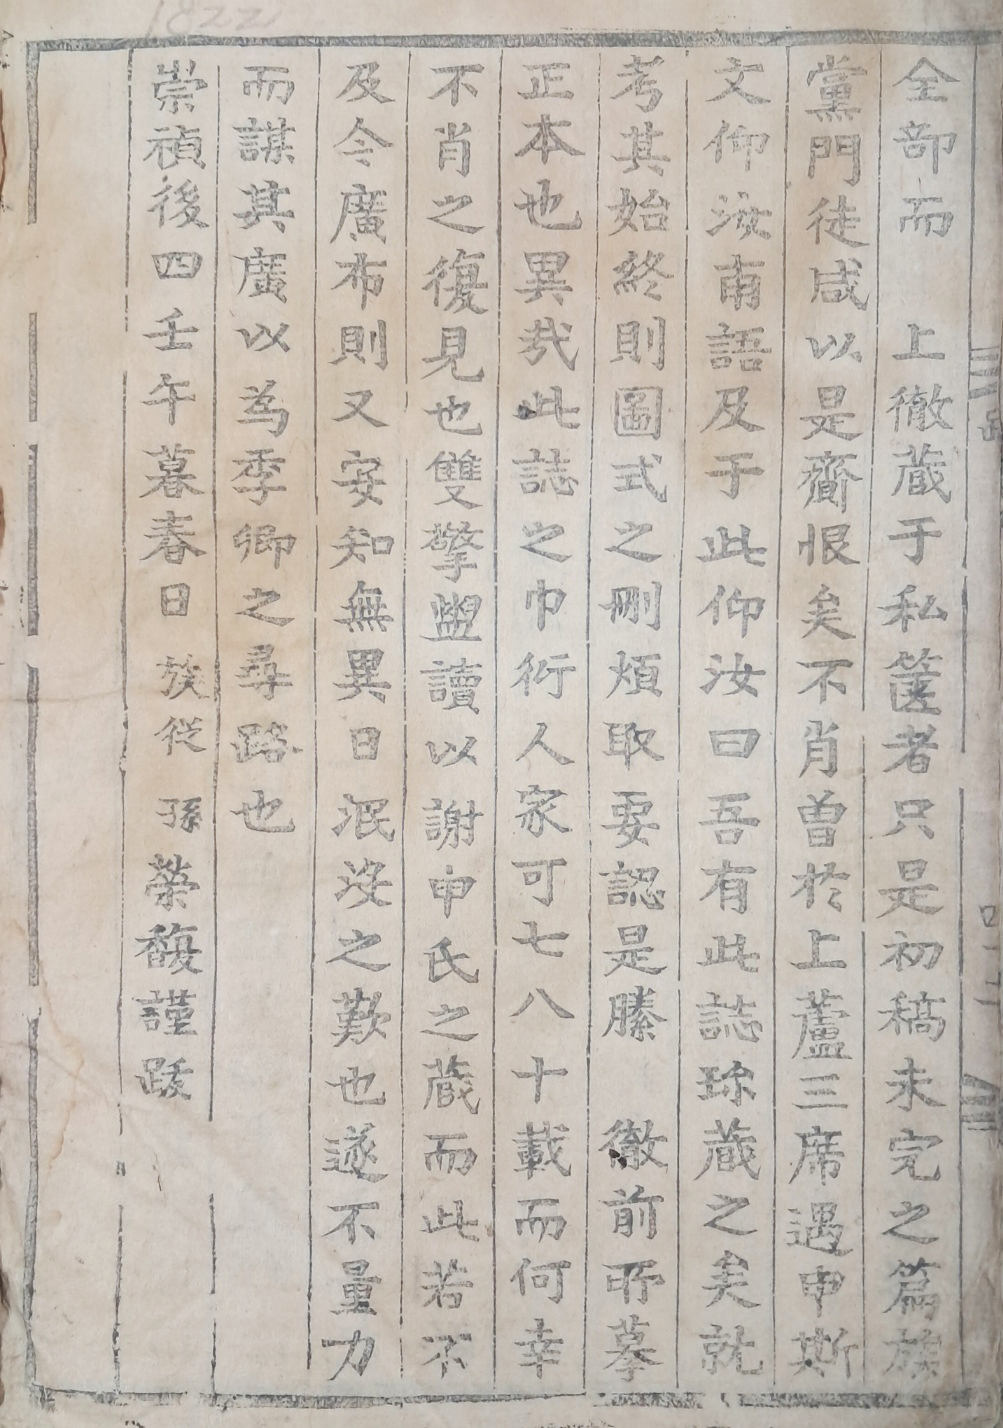 1822
全部而 上徹蔵于私篋者只是初稿未完之篇族
黨門徒咸以是齎恨矣不肖曽於上蘆三席遇申斯
文仰汝甫語及于此仰汝曰吾有此誌珎蔵之矣就
考其始終則圖式之刪煩取要認是縢 徹前所摹
正本也異㢤此誌之巾衍人家可七八十載而何幸
不肖之復見也雙擎盥讀以謝申氏之蔵而此若不
及今廣布則又安知無異日泯沒之歎也遂不量力
而謀其廣以為季卿之尋路也
崇禎後四壬午暮春日族從孫榮馥謹跋